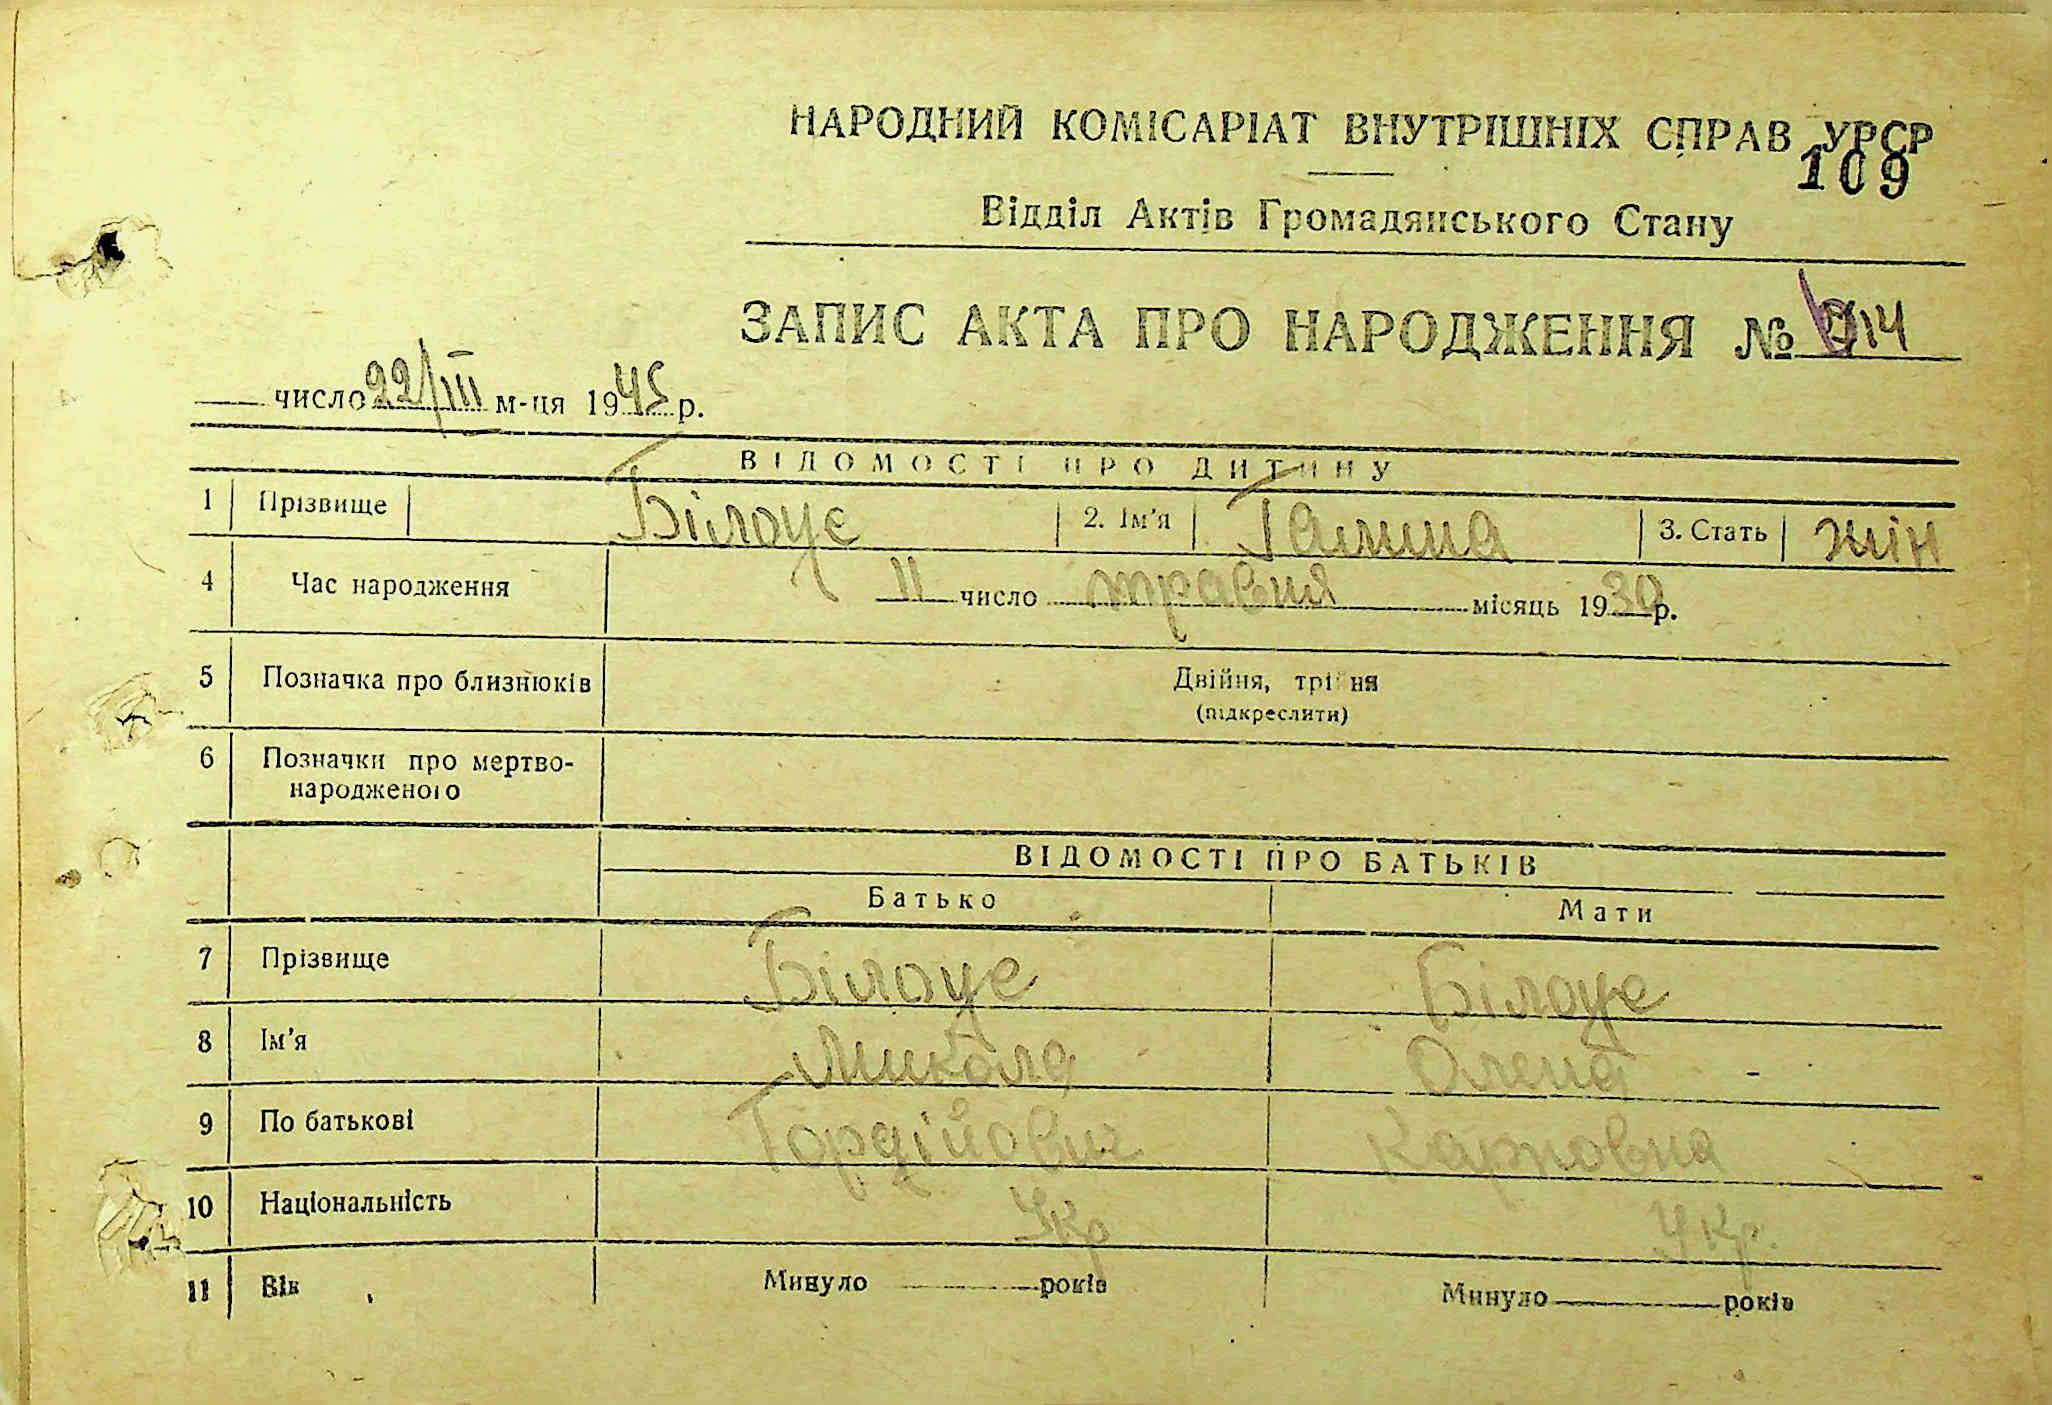 НАРОДНИЙ КОМІСАРІАТ ВНУТРІШНІХ СПРАВ УРСР
109
Відділ Актів Громадянського Стану
ЗАПИС АКТА ПРО НАРОДЖЕННЯ №
число 22/III м-ця 1945 р.
ВІДОМОСТІ ПРО ДИТИНУ
1 Прізвище Білоус 2. Ім'я Галина 3. Стать жін
4 Час народження 11 число травня місяць 1930 р.
5 Позначка про близнюків Двійня, трійня
(підкреслити)
6 Позначки про мертво-
народженого
ВІДОМОСТІ ПРО БАТЬКІВ
Батько Мати
7 Прізвище Білоус Білоус
8 Ім'я Микола Олена
9 По батькові Гордійович Карповна
10 Національність Укр Укр.
11 Вік Минуло років Минуло років